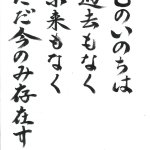 のいのちは
過去もなく
未来もなく
ただ今のみ存在す